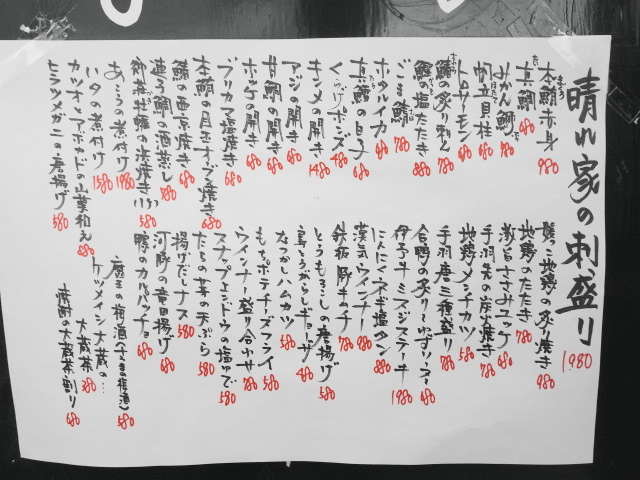 晴れ家の刺し盛り 1,980
本鮪赤身 980
真鯛 680
みかん鰤 780
帆立貝柱 680
トロサーモン 680
鰆の炙り刺し 780
鰹の塩たたき 880
ごま鯖 780
ホタルイカ 680
真鱈の白子 680
くじりポンズ 480
キンメの開き 1480
アジの開き 680
甘鯛の開き 680
ホッケの開き 680
ブリカマ塩焼き 680
本鮪の目玉オーブン焼き 680
鰆の西京焼き 680
連子鯛の酒蒸し 780
牡蠣の浜焼き(1ヶ) 580
あこうの煮付け 1980
ハタの煮付け 1580
カツオとアボカドの山葵和え 880
ヒラツメガニの唐揚げ 580
地鶏の炙り焼き 980
地鶏のたたき 780
ささみユッケ 680
手羽先の炭火焼き 780
地鶏メンチカツ 580
手羽唐三種盛り 780
合鴨の炙り〜いずソース〜 680
伊予牛ミスジステーキ 1980
にんにくネギ塩タン 880
漢気ウインナー 980
鉄板豚キムチ 780
とうもろこしの唐揚げ 580
青とうがらしギョーザ 480
なつかしハムカツ 580
もちポテチーズフライ 580
ウインナー盛り合わせ 780
スナップエンドウの塩ゆで 580
たらの芽の天ぷら 580
揚げだしナス 580
河豚の竜田揚げ 680
豚のカルパッチョ 680
魔王の梅酒 580
ケツメイシ大蔵の…
大蔵茶 380
焼酎の大蔵茶割り 680